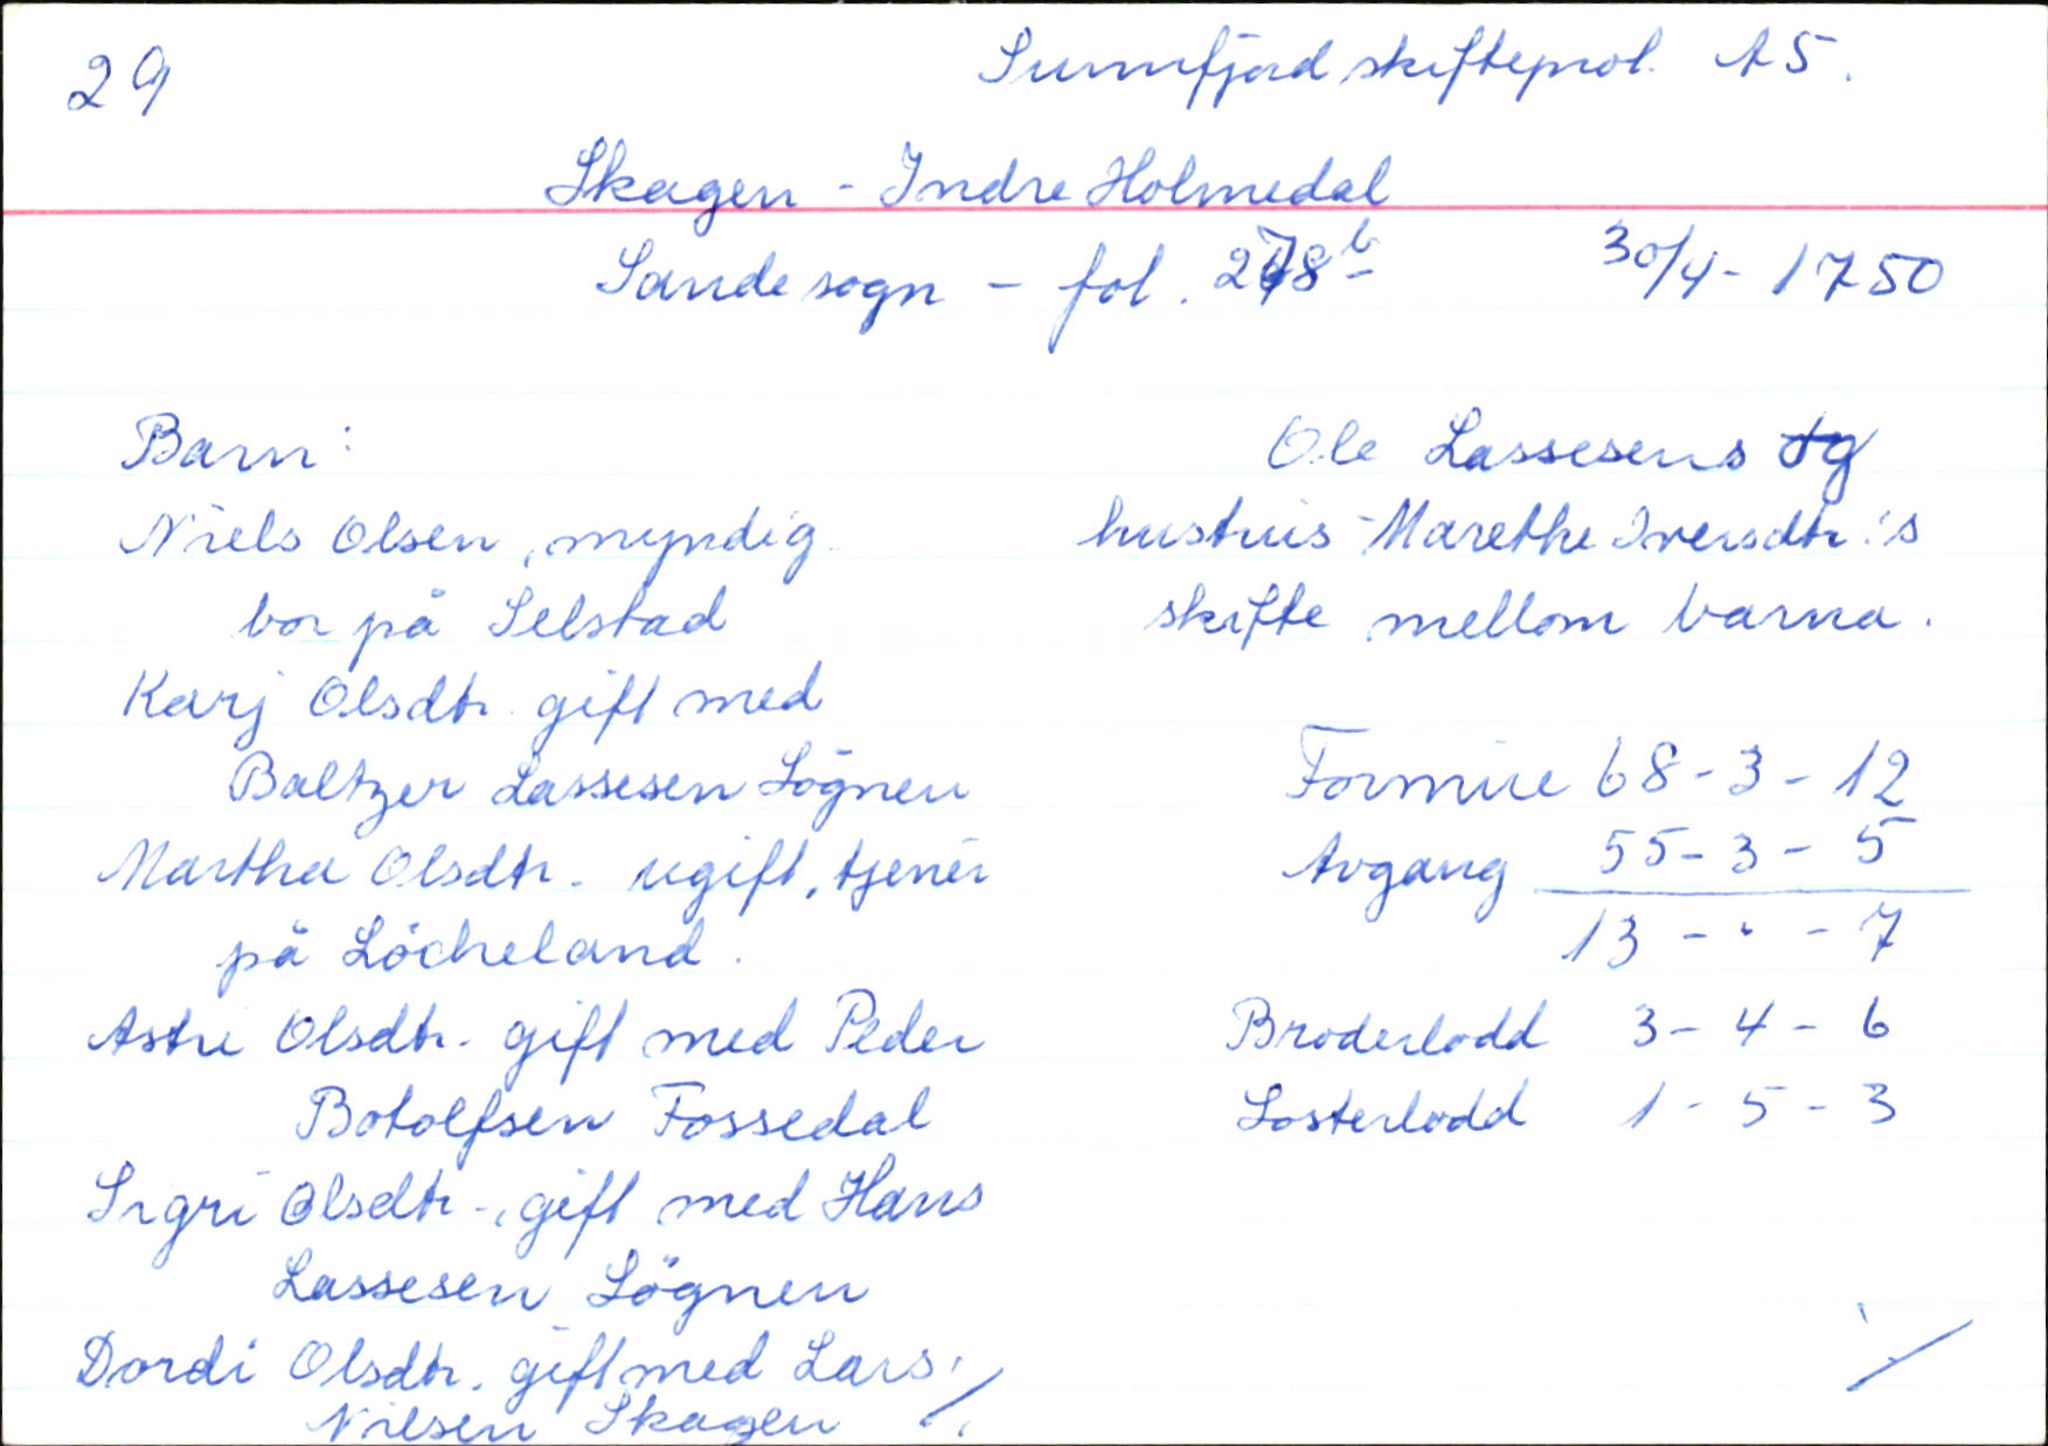 29
Sunnfjord skifteprol. A 5.
Skagen - Indre Holmedal
Sande sogn - fol. 278 b
30/4 - 1750
Barn:
Niels Olsen, myndig
bor på Selstad
Karj Olsdtr. gift med
Baltzer Lassesen Lögnen
Martha Olsdtr. ugift, tjener
på Löcheland.
Astri Olsdtr. gift med Peder
Botolfsen Fossedal
Sigri Olsdtr., gift med Hans
Lassesen Lögnen
Dordi Olsdtr. gift med Lars
Nilsen Skagen ./.
Ole Lassesens og
hustrus Marethe Iversdtr:s
skifte mellom barna.
Formue 68 - 3 - 12
Avgang 55 - 3 - 5
13 - " - 7
Broderlodd 3 - 4 - 6
Søsterlodd 1 - 5 - 3
./.